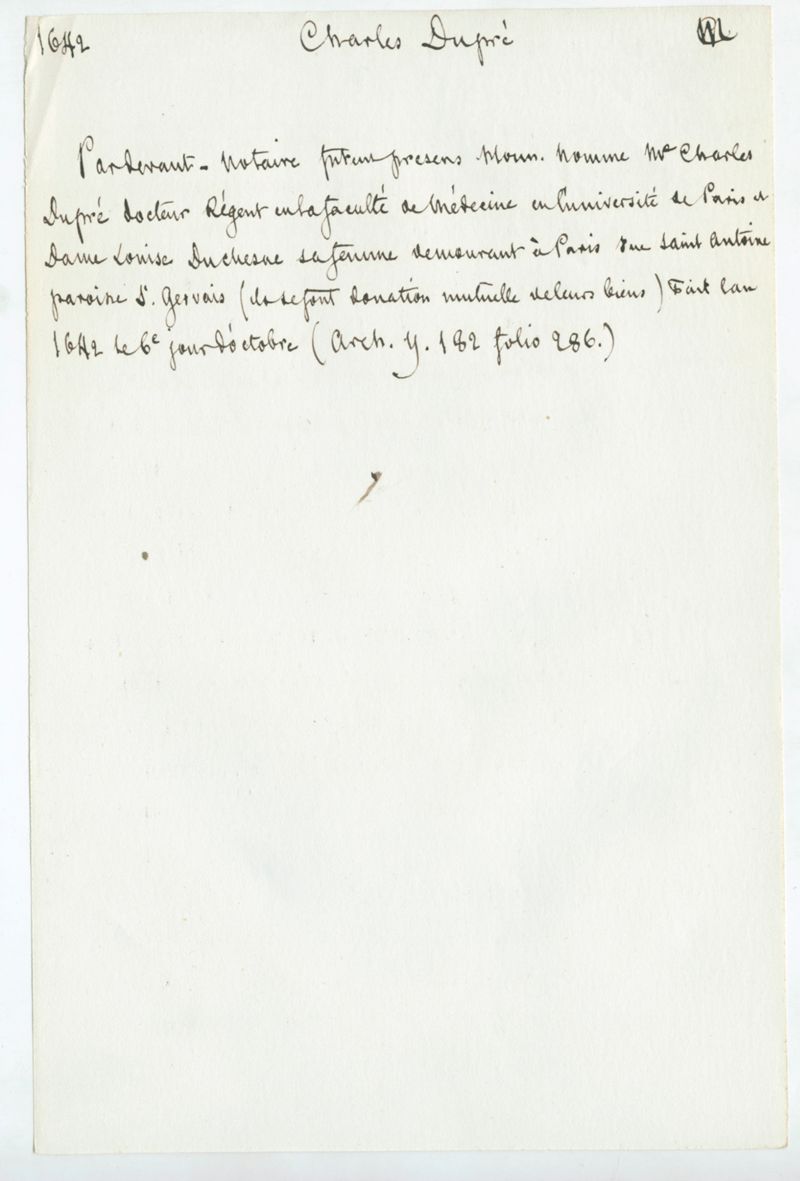 1642 Charles Dupré
Pardevant - Notaire furent presens Mons. Nomme Me Charles
Dupré docteur Régent en la faculté de Médecine en l'université de Paris et
Dame Louise Duchesne sa femme demourant à Paris rue Saint Antoine
paroisse St. Gervais (ils se font donation mutuelle de leurs biens) Fait l'an
1642 le 6e jour d'octobre (Arch. Y. 182 folio 286.)